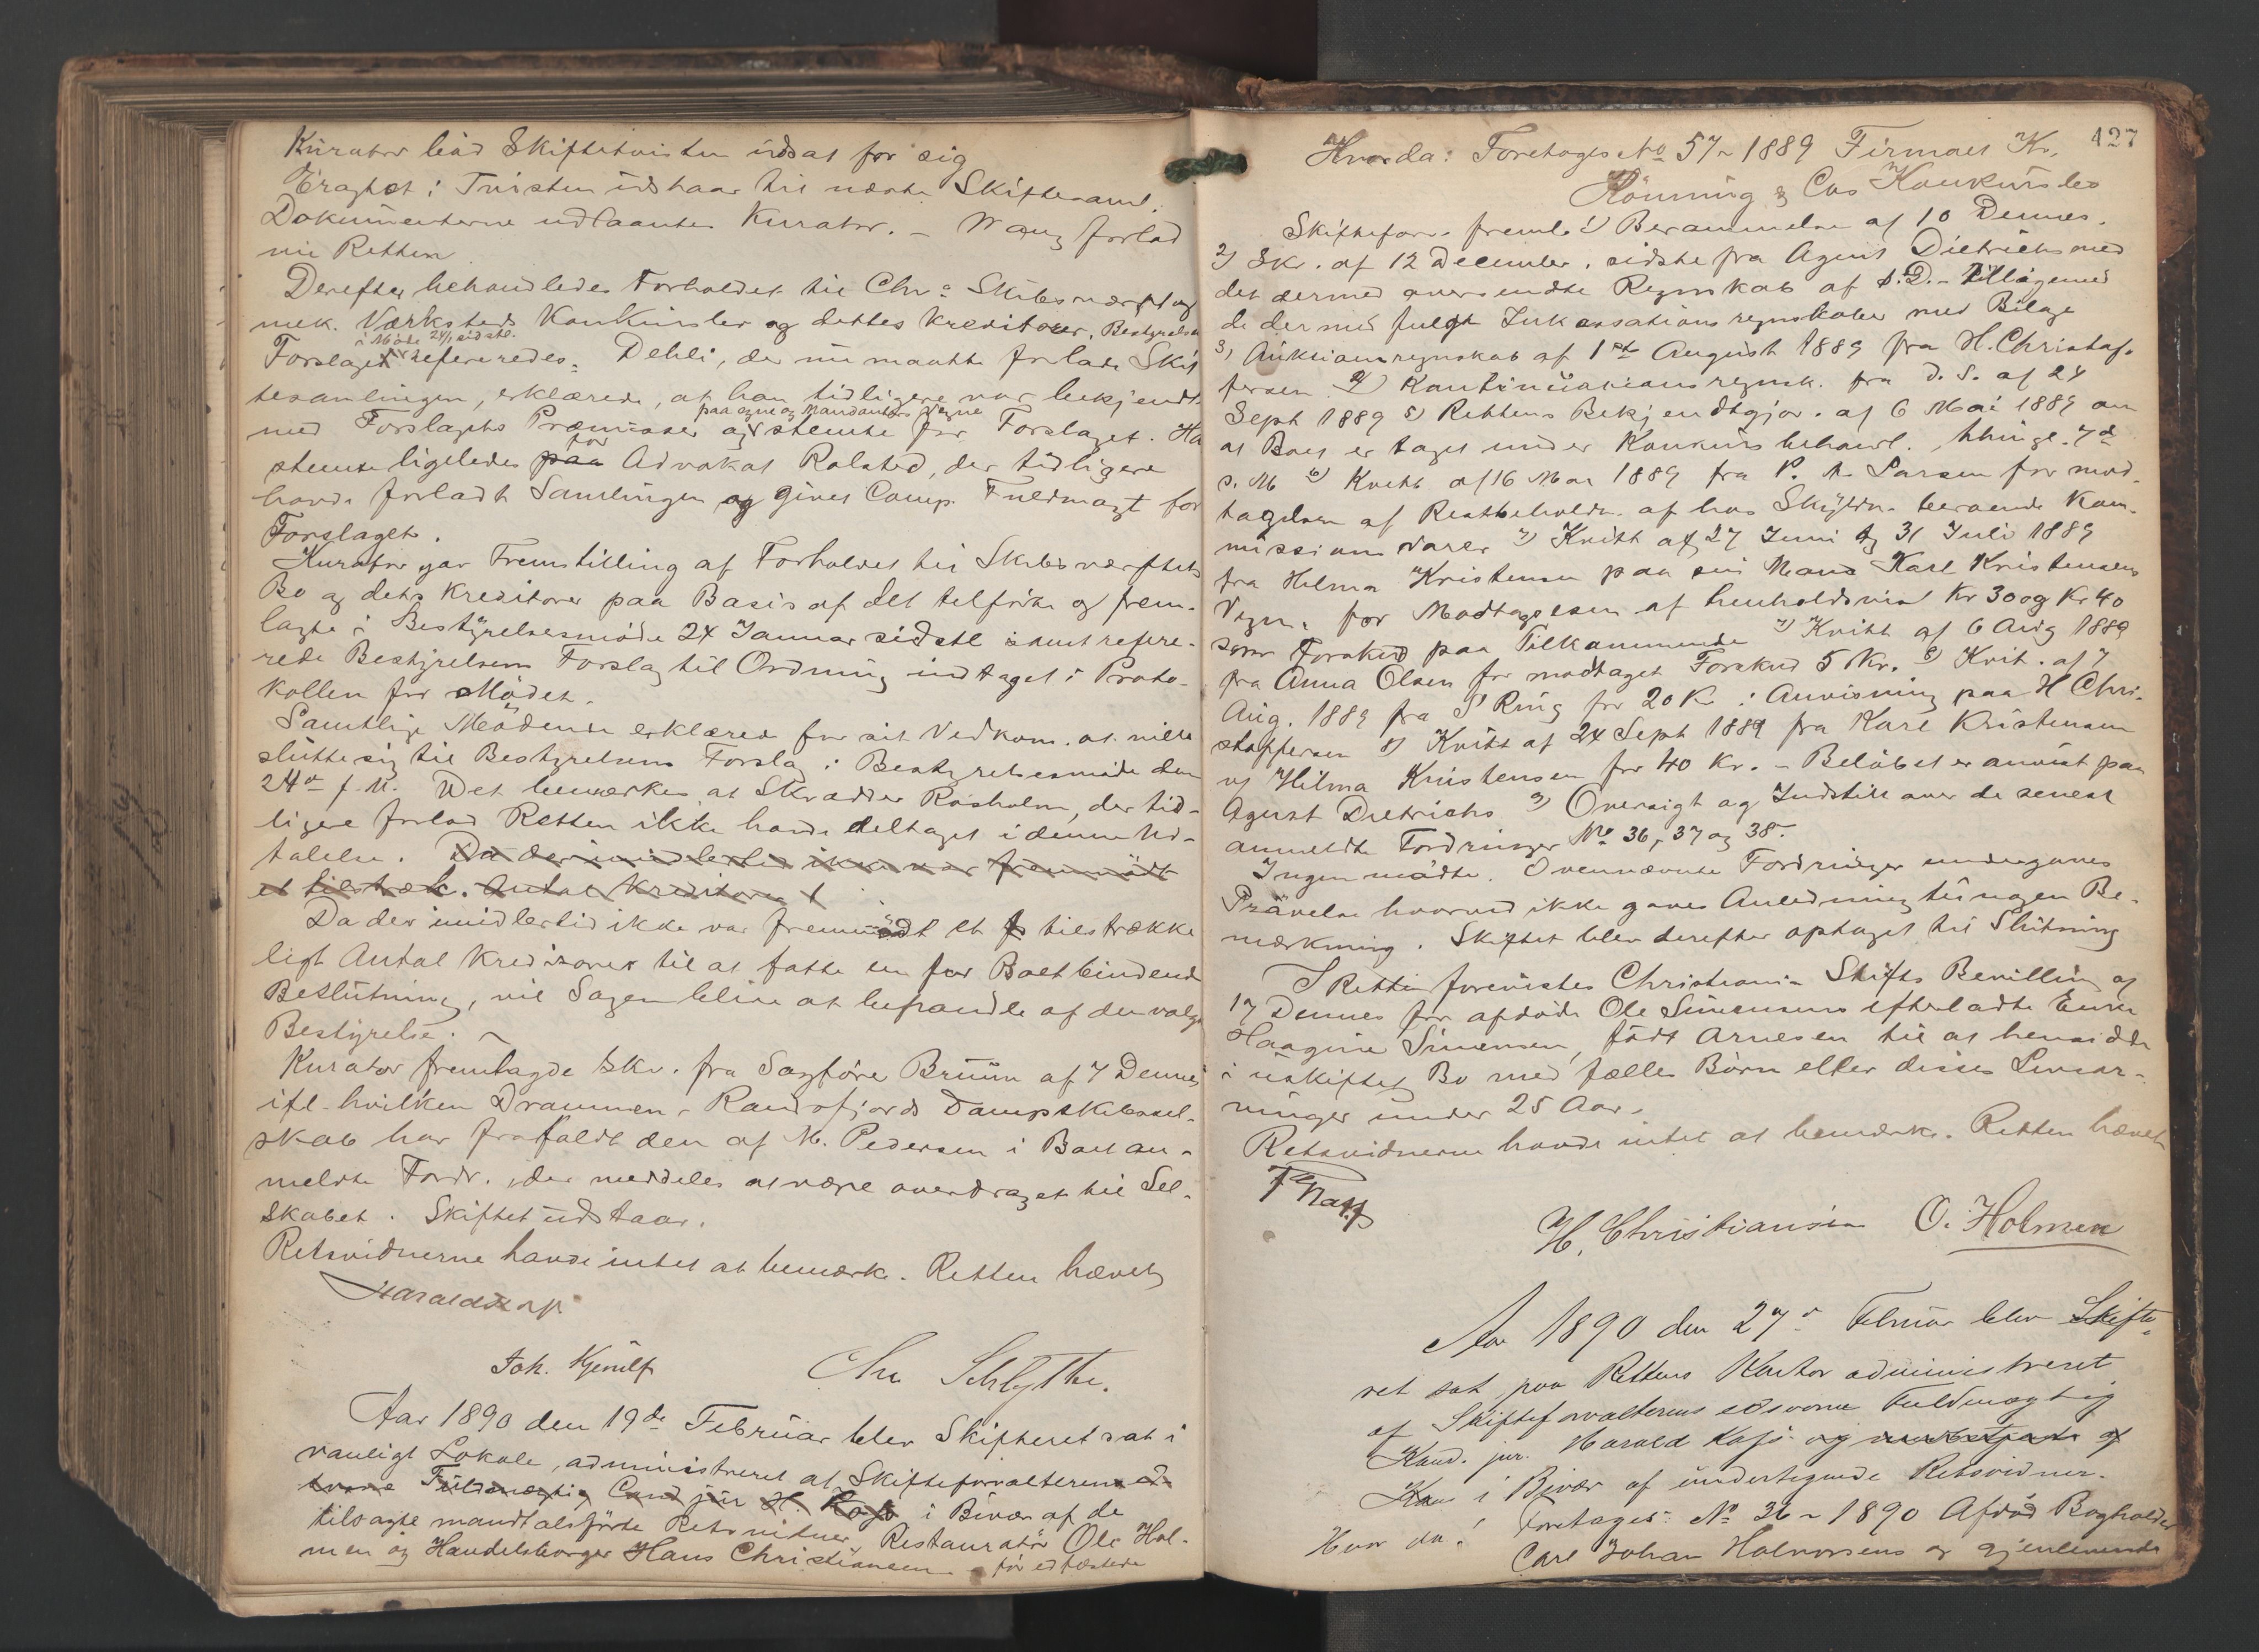 Kurator bad Skiftetvisten udsat for sig
Eragtet: Tvisten udstaar til næste Skiftesaml.
Dokumenterne udlaantes Kurator. – Wang forlod
nu Retten
Derefter behandledes Forholdet til Chr.a Skibsværft og
mek. Værksteds Konkursbo og dettes Kreditorer, Bestyrelsens
i Møde 24/1 sidstl.
Forslaget refereredes. Dehli, der nu maatte forlade Skif
tesamlingen, erklærede, at han tidligere var bekjendt
paa egne og Mandanters Vegne
med Forslagets Præmisser og stemte for Forslaget. Ha
stemte ligeledes paa for Advokat Rolsted, der tidligere
havde forladt Samlingen og givet Comp. Fuldmagt for
Forslaget.
Kurator gav Fremstilling af Forholdet til Skibsværftets
Bo og dets Kreditorer paa Basis af det tilførte og frem-
lagte i Bestyrelsesmøde 24 Januar sidstl samt refere-
rede Bestyrelsens Forslag til Ordning indtaget i Proto-
kollen for Mødet.
Samtlige Mødende erklæred for sit Vedkom. at ville
slutte sig til Bestyrelsens Forslag i Bestyrelsesmøde den
24de f. M. Det bemærkes at Skrædder Rosholm, der tid-
ligere forlod Retten ikke havde deltaget i denne Ud-
talelse. Da der imidlertid ikke var fremmødt
et tilstræk. Antal Kreditorer t
Da der imidlertid ikke var fremmødt et tilstrække
ligt Antal Kreditorer til at fatte en for Boet bindende
Beslutning, vil Sagen blive at behandle af den valgte
Bestyrelse.
Kurator fremlagde Skr. fra Sagfører Bruun af 7 Dennes
ifl. hvilken Drammen – Randsfjords Dampskibssel-
skab har frafaldt den af M. Pedersen i Boet an-
meldte Fordr., der meddeles at være overdraget til Sel-
skabet. Skiftet udstaar.
Retsvidnerne havde intet at bemærke. Retten hævet
Harald Kaja
Joh. Kjerulf Chr Schlytter.
Aar 1890 den 19de Februar blev Skifteret sat i
vanligt Lokale, administreret af Skifteforvalterens ed-
svorne Fuldmægtig Cand jur H. Kaja i Bivær af de
tilsagte mandtalsførte Retsvidner, Restauratør Ole Hol-
men og Handelsborger Hans Christiansen – før edfæstede
427
Hvorda: Foretoges No 57 – 1889 Firmaet Kr.
Hönning & Cos Konkursbo
Skifteforv. freml. 1) Berammelse af 10 Dennes.
2) Skr. af 12 December sidste fra Agent Dietrichs med
det dermed oversendte Regnskab af s.D. – Tillige med
de dermed fulgte Inkassationsregnskaber med Bilage
3) Auktionsregnskab af 1ste August 1889 fra H. Christof-
fersen 4) Kontinuationsregnsk. fra d. S. af 24
Sept 1889 5) Rettens Bekjendtgjør. af 6 Mai 1889 om
at Boet er taget under Konkursbehandl. thingl. 7de
s. M 6) Kvitt af 16 Mai 1889 fra P. A. Larsen for mod-
tagelsen af Restbeholdn. af hos Skyldn. beroende Kom-
missionsvarer 7) Kvitt af 27 Juni og 31 Juli 1889
fra Hilma Kristensen paa sin Mand Karl Kristensens
Vegne, for Modtagelsen af henholdsvis Kr 30 og Kr 40
som Forskud paa Tilkommende 7) Kvitt af 6 Aug 1889
fra Anna Olsen for modtaget Forskud 5 Kr. 8) Kvit. af 7
Aug. 1889 fra S Ring for 20 K i Anvisning paa H Chri-
stoffersen 8) Kvitt af 24 Sept 1889 fra Karl Kristensen
v/ Hilma Kristensen for 40 Kr. – Beløbet er anvist paa
Agent Dietrichs 9) Oversigt og Indstill over de senest
anmeldte Fordringer No 36, 37 og 38.
Ingen mødte. Ovennævnte Fordringer undergaves
Prøvelse hvorved ikke gaves Anledning til nogen Be-
mærkning. Skiftet blev derefter optaget til Slutning
I Retten forevistes Christiania Stifts Bevilling af
17 Dennes for afdøde Ole Simensens efterladte Enke
Haagine Simensen, født Arnesen til at hensidde
i uskiftet Bo med fælles Børn eller disses Livsar-
vinger under 25 Aar.
Retsvidnerne havde intet at bemærke. Retten hævet
H. Christiansen O. Holmen
Aar 1890 den 27de Februar blev Skifte-
ret sat paa Rettens Kontor administreret
af Skifteforvalterens edsvorne Fuldmægtig
Kand. jur. Harald Kaja og
Kaus i Bivær af undertegnede Retsvidner.
Hvor da: Foretoges: No 36 – 1890 Afdød Bogholder
Carl Johan Halvorsens og gjenlevende